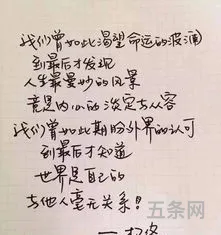 我们曾如此渴望命运的波澜
到最后才发现
人生最曼妙的风景
竟是内心的淡定与从容
我们曾如此期盼外界的认可
到最后才知道
世界是自己的
与他人毫无关系！
五条网